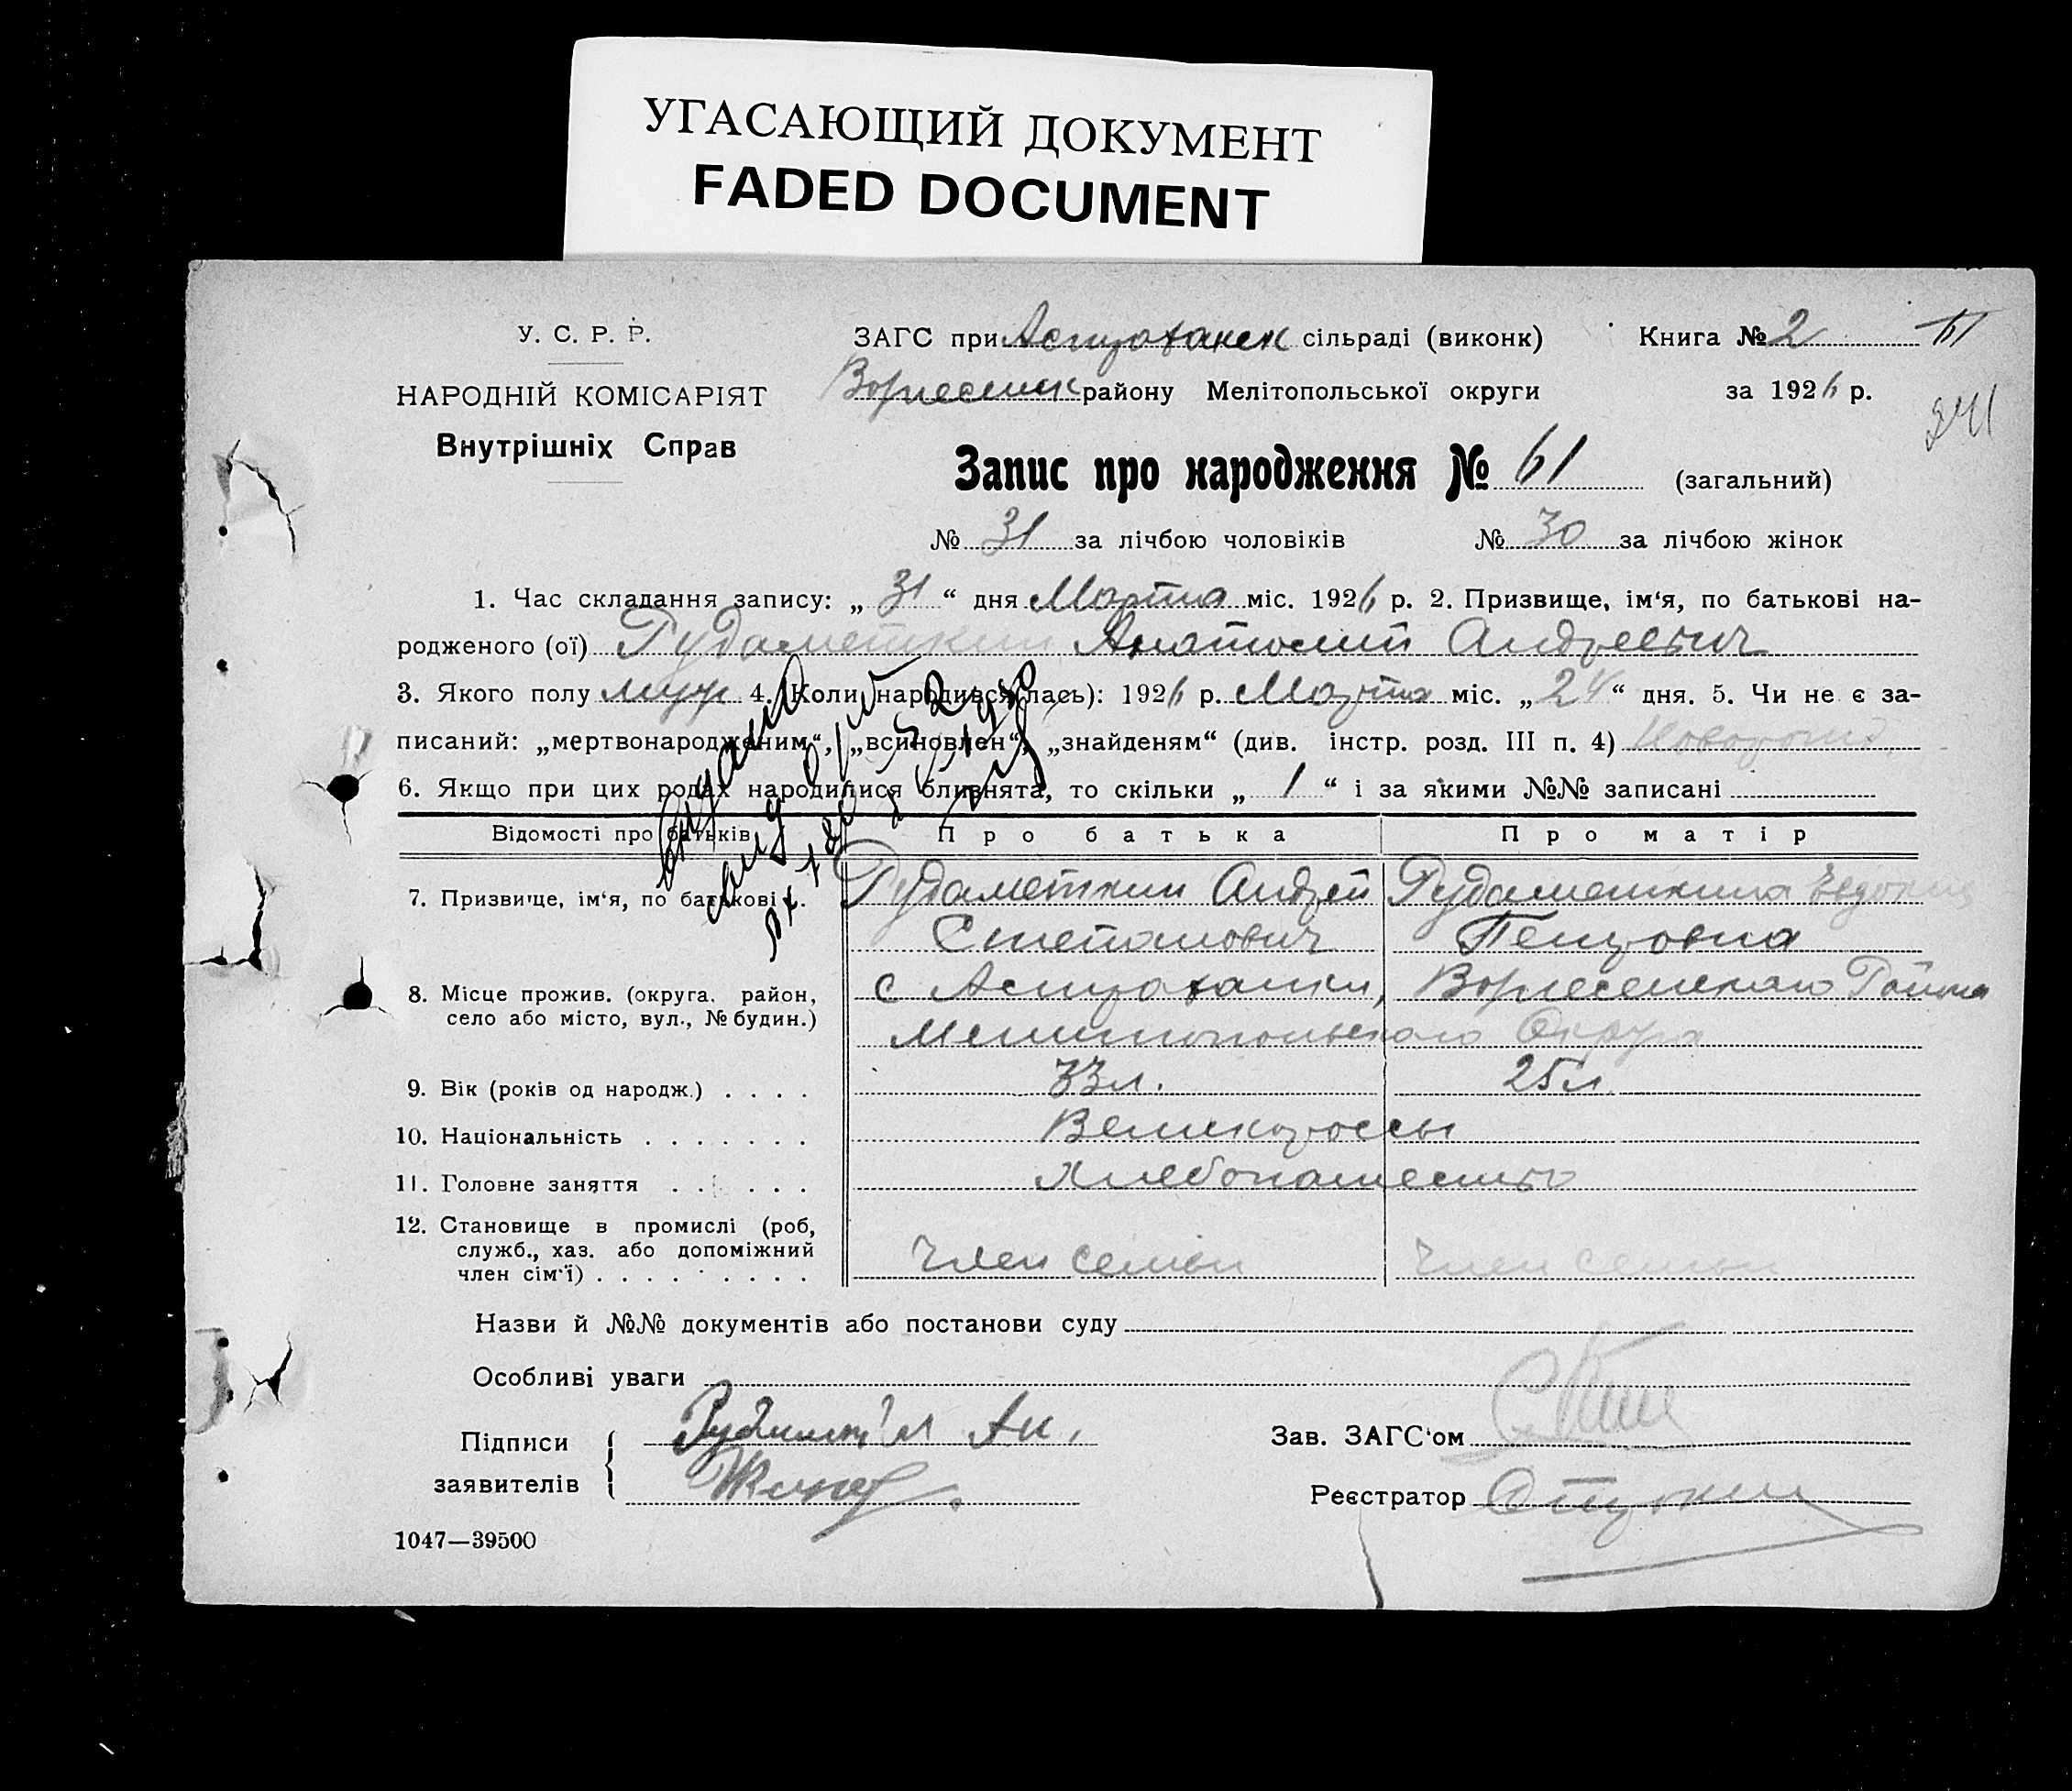 УГАСАЮЩИЙ ДОКУМЕНТ
FADED DOCUMENT
У. С. Р. Р.
НАРОДНІЙ КОМІСАРІЯТ
Внутрішніх Справ
ЗАГС при Астраханск сільраді (виконк)
Вознесенск району Мелітопольської округи
Книга № 2
61
за 1926 р.
241
Запис про народження № 61 (загальний)
№ 31 за лічбою чоловіків № 30 за лічбою жінок
1. Час складання запису: „ 31 “ дня Марта міс. 1926 р. 2. Призвище, ім‘я, по батькові на-
родженого (ої) Рудаметкин Анатолий Андреевич
3. Якого полу муж 4. Коли народився(лась): 1926 р. Марта міс. „ 24 “ дня. 5. Чи не є за-
писаний: „мертвонародженим“, „всиновлен“, „знайденям“ (див. інстр. розд. III п. 4)
6. Якщо при цих родах народилися близнята, то скільки „ 1 “ і за якими №№ записані
Відомості про батьків Про батька Про матір
7. Призвище, ім‘я, по батькові . Рудаметкин Андрей Рудаметкина Евдокия
Степанович Петровна
8. Місце прожив. (округа, район, с Астраханки, Вознесенскаго Района
село або місто, вул., № будин.) Мелитопольскаго Округа
9. Вік (років од народж.) . . . . 33 л. 25 л
10. Національність . . . . . . . Великороссы
11. Головне заняття . . . . . . Хлебопашество
12. Становище в промислі (роб,
служб., хаз. або допоміжний
член сім‘ї) . . . . . . . . . Член семьи Член семьи
Назви й №№ документів або постанови суду
Особливі уваги
Підписи Рудаметкин Ан.
заявителів
Зав. ЗАГС‘ом
Реєстратор
1047—39500